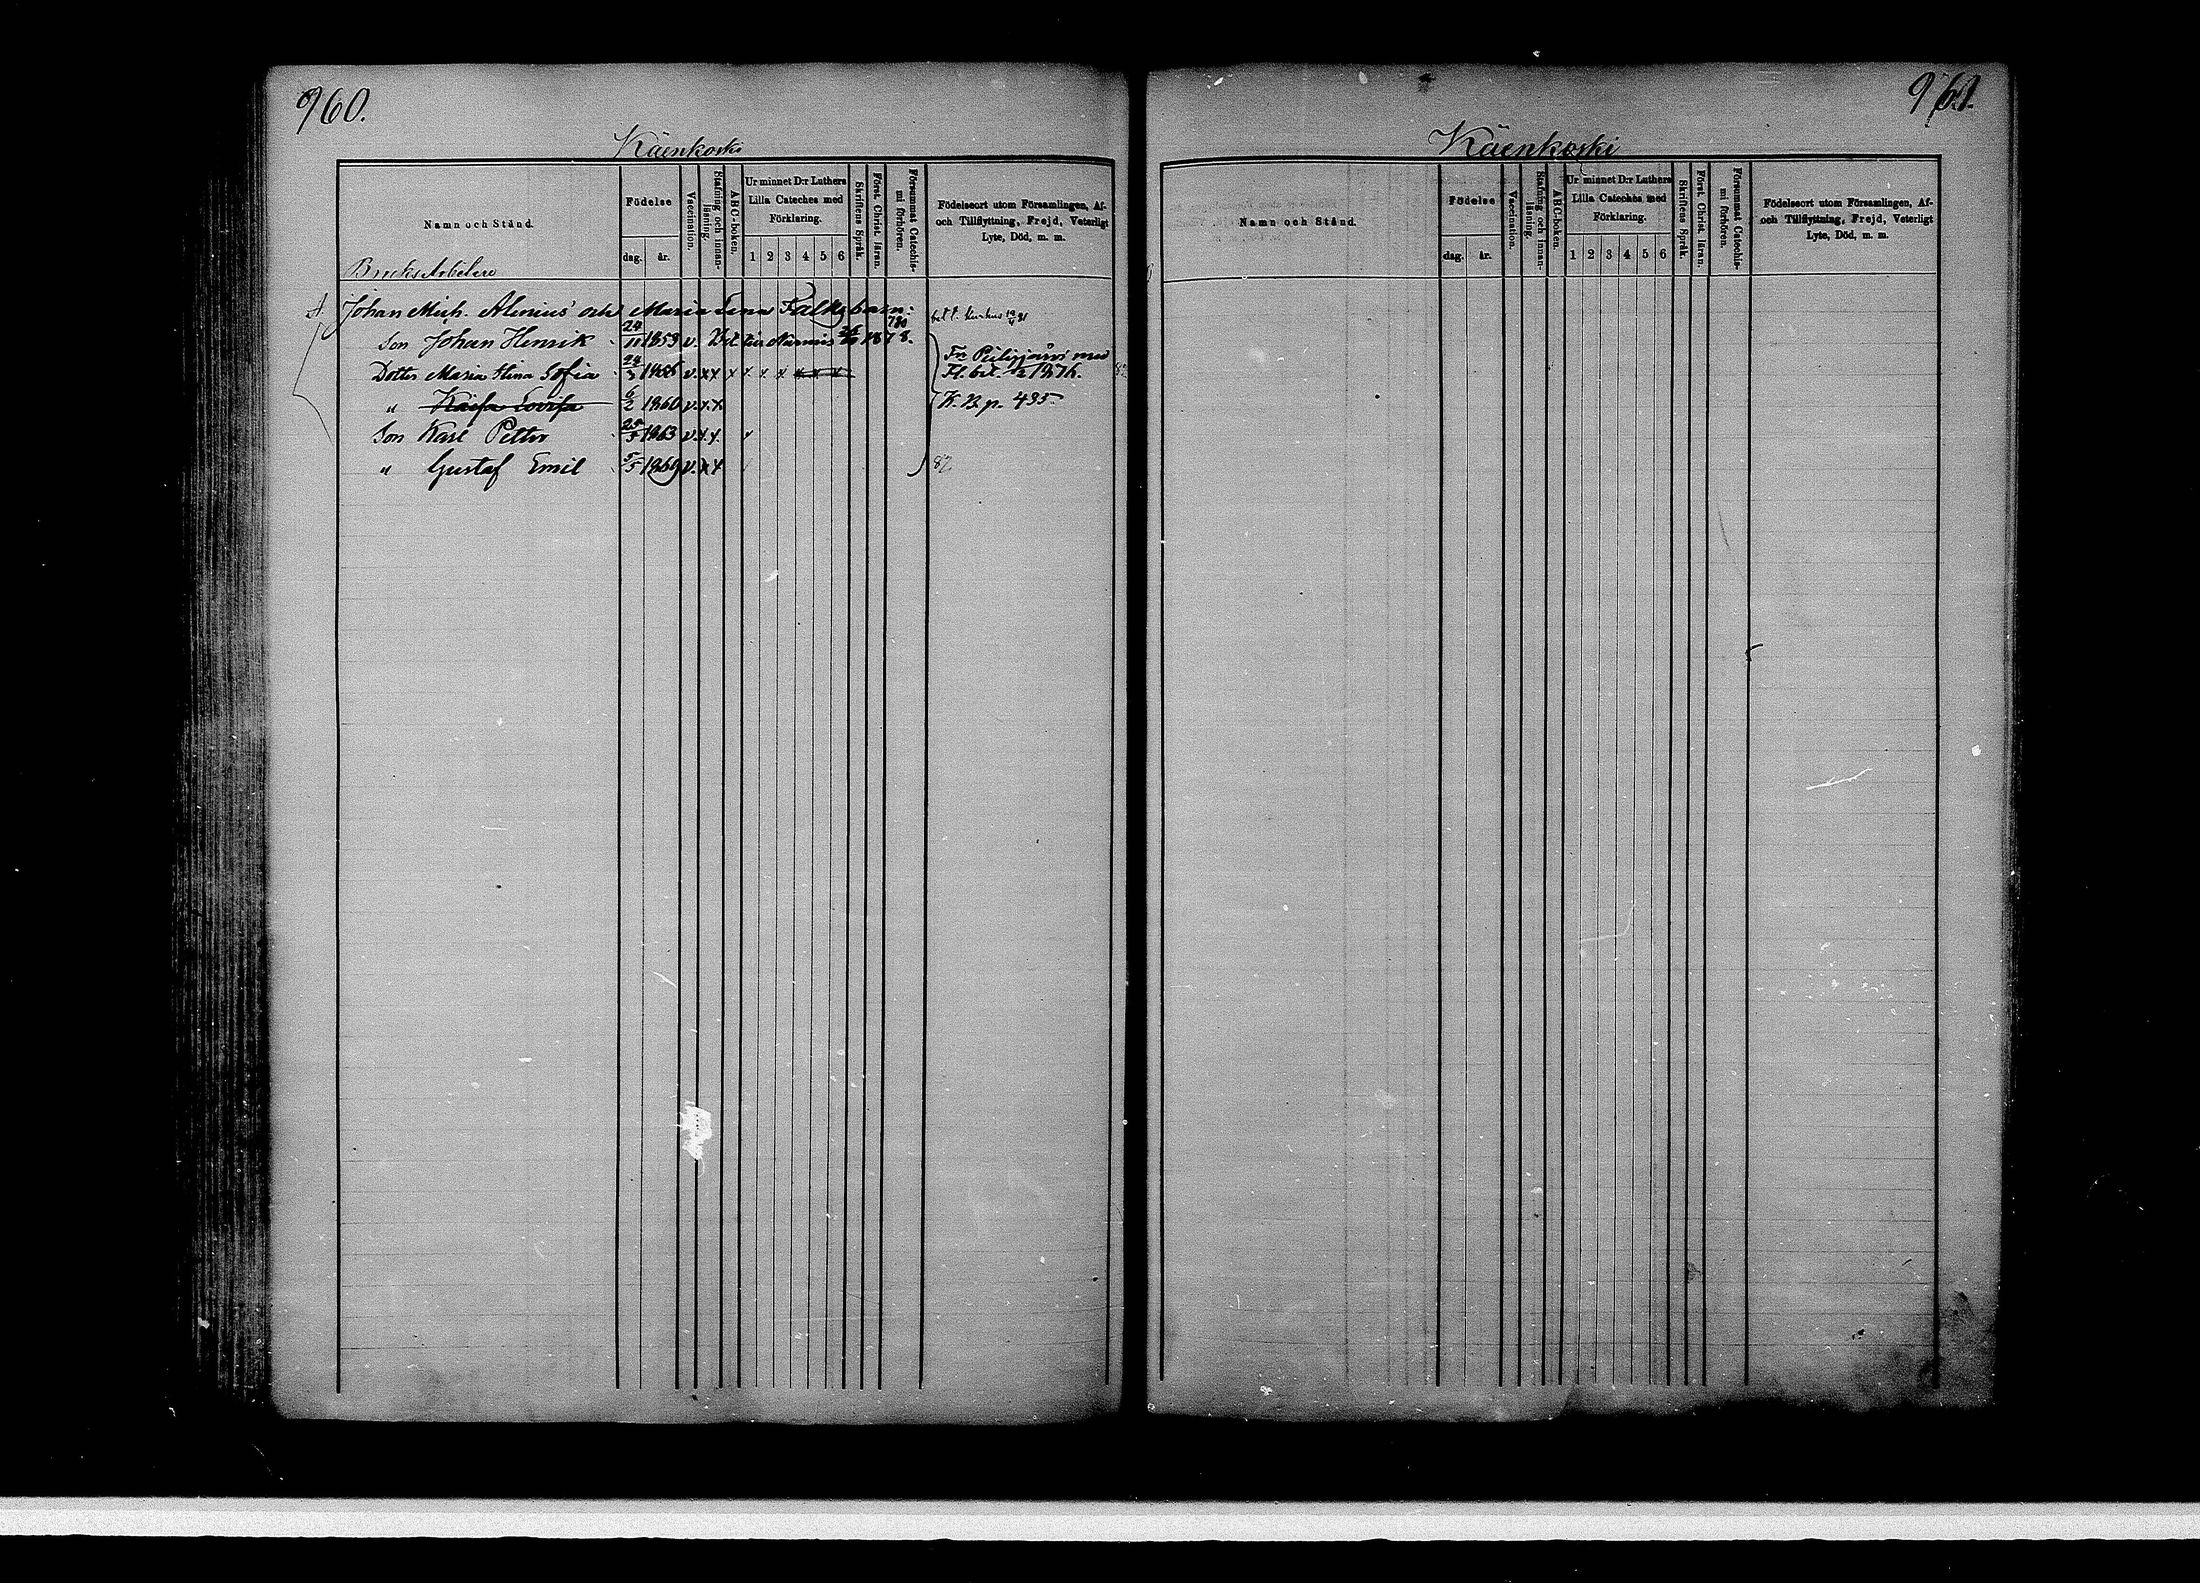 960.
Käenkoski
Namn och Stånd.
Födelse
dag. år.
Vaccination.
Stafning och innan-läsning.
ABC-boken.
Ur minnet D:r Luthers
Lilla Cateches med
Förklaring.
1 2 3 4 5 6
Skriftens Språk.
Först. Christ. läran.
Försummat Catechis-
mi förhören.
Födelseort utom Församlingen, Af-
och Tillflyttning, Frejd, Veterligt
Lyte, Död, m. m.
Bruks Arbetare
Johan Mich. Alenius och Maria Lena Falks barn:
Son Johan Henrik 24/11 1853 v. Bet. till Nurmis 1878. 780
Dotter Maria Stina Sofia 24/3 1856 v. x x x x x x x x x
Fr Pielisjärvi med
Fl. bet. 1876.
" Kaisa Lovisa 6/2 1860 v. x. x. K. B. p. 435
Son Karl Petter 29/5 1863 v. x x. x
" Gustaf Emil 5/5 1869 v. x x 82
961.
Käenkoski
Namn och Stånd.
Födelse
dag. år.
Vaccination.
Stafning och innan-läsning.
ABC-boken.
Ur minnet D:r Luthers
Lilla Cateches med
Förklaring.
1 2 3 4 5 6
Skriftens Språk.
Först. Christ. läran.
Försummat Catechis-
mi förhören.
Födelseort utom Församlingen, Af-
och Tillflyttning, Frejd, Veterligt
Lyte, Död, m. m.